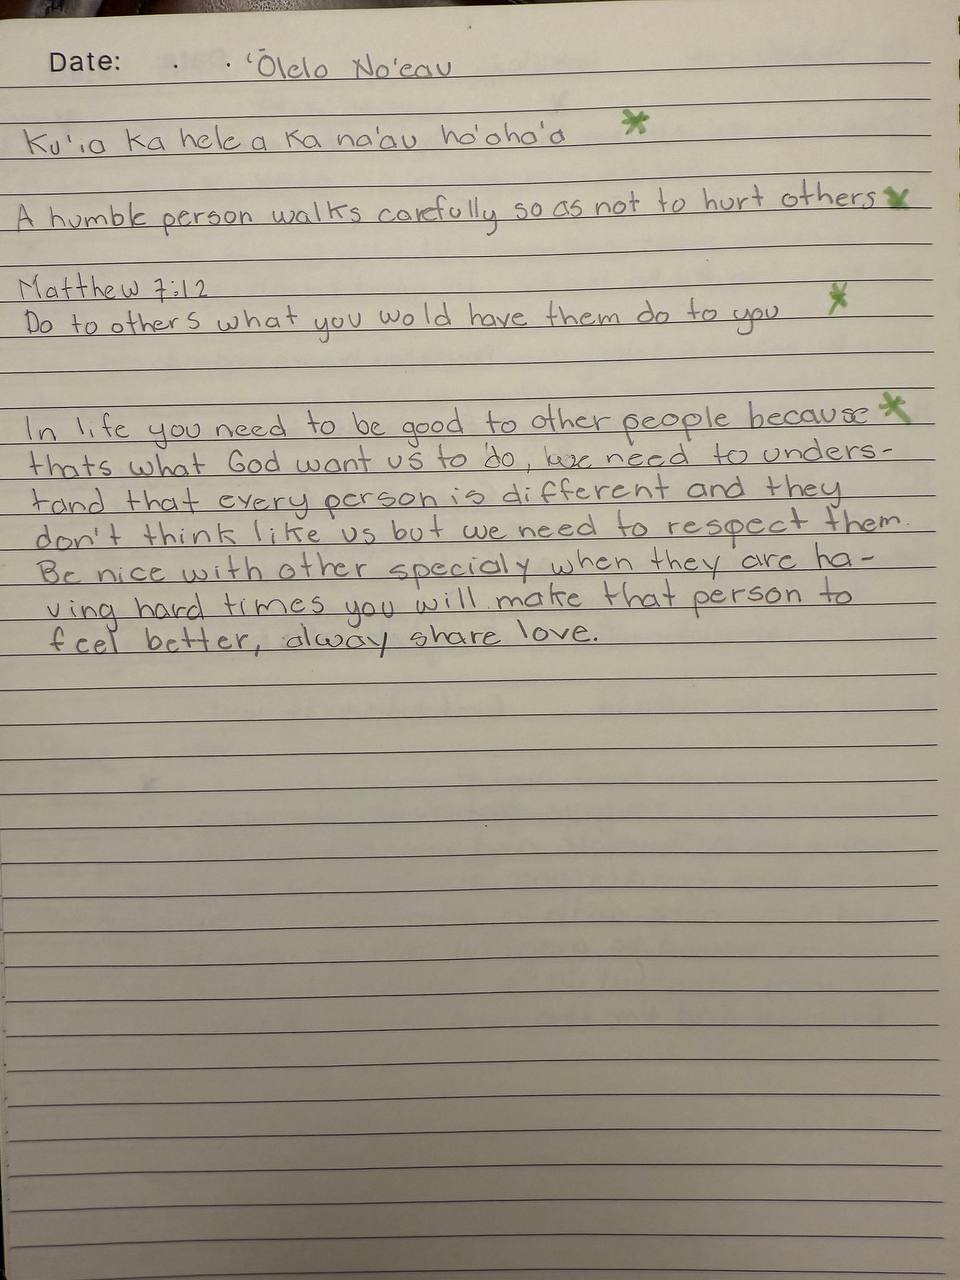 Date: . . ʻŌlelo No'eau
Ku'ia ka hele a ka na'au ha'aha'a
A humble person walks carefully so as not to hurt others
Matthew 7:12
Do to others what you wold have them do to you
In life you need to be good to other people because
thats what God want us to do, we need to unders-
tand that every person is different and they
don't think like us but we need to respect them.
Be nice with other specialy when they are ha-
ving hard times you will make that person to
feel better, alway share love.